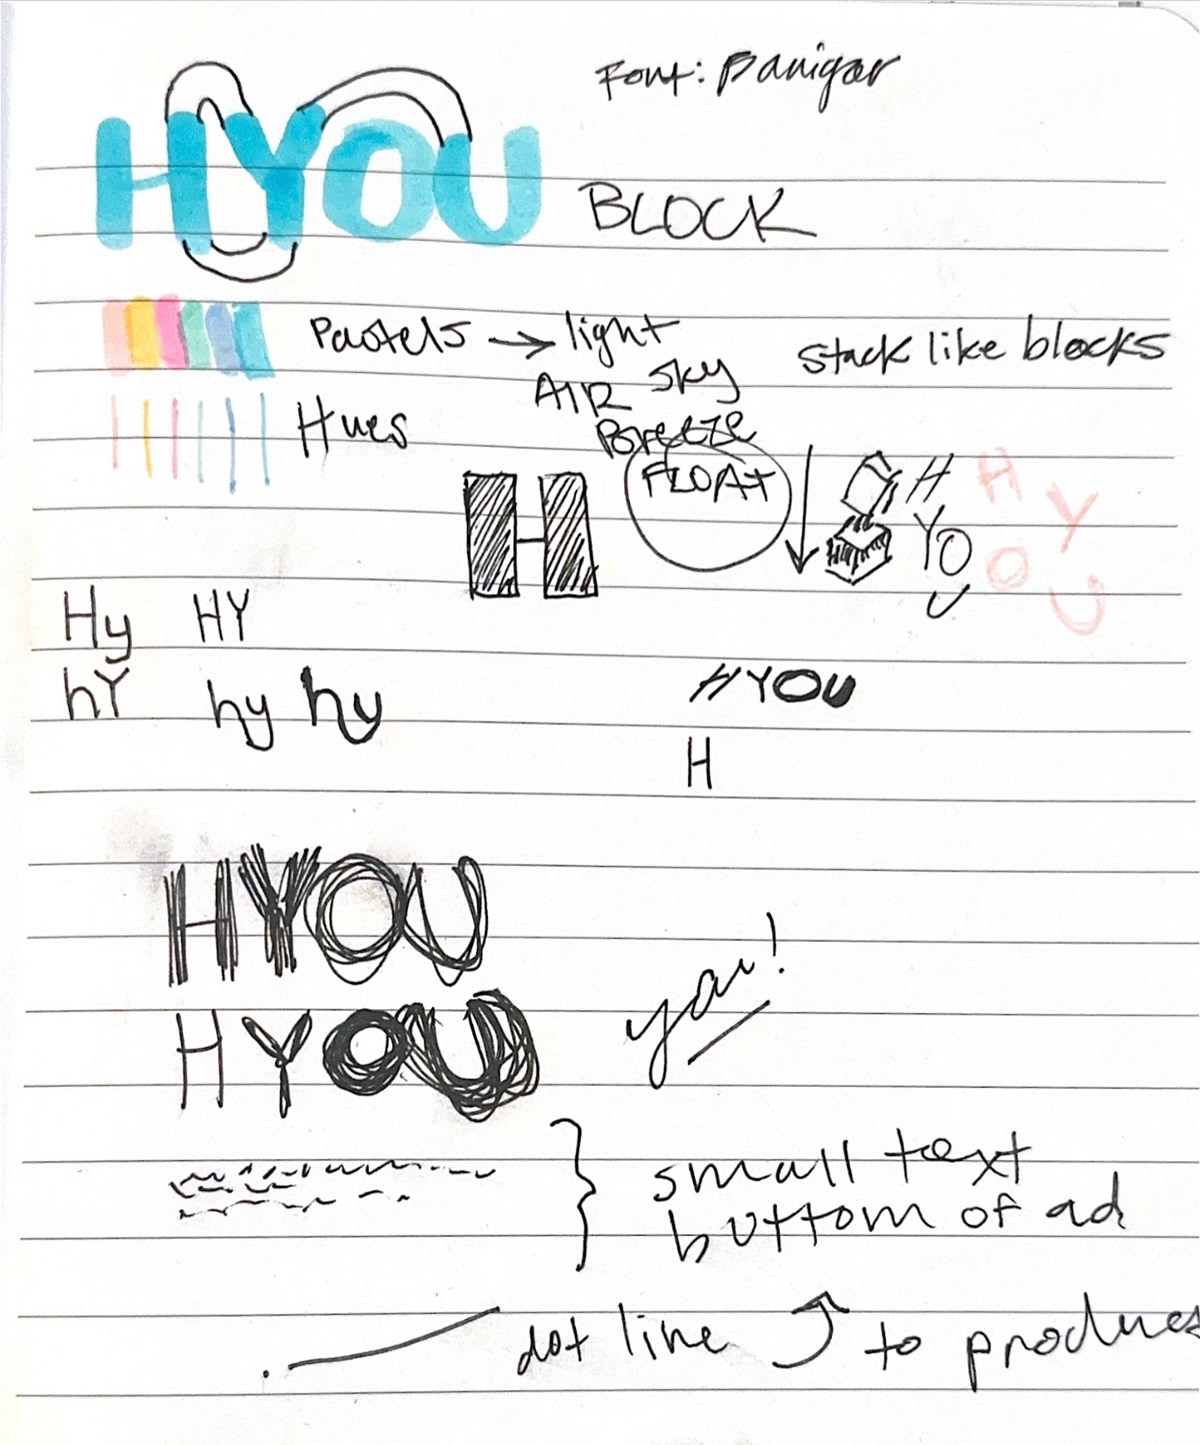 HYOU
Font: Banigar
BLOCK
Pastels → light
AIR sky
Breeze
FLOAT
stack like blocks
Hues
H
H
YO
U
H
Y
O
U
Hy HY
hY hy hy
HYOU
H
HYOU
HYOU
small text
buttom of ad
dot line to produces